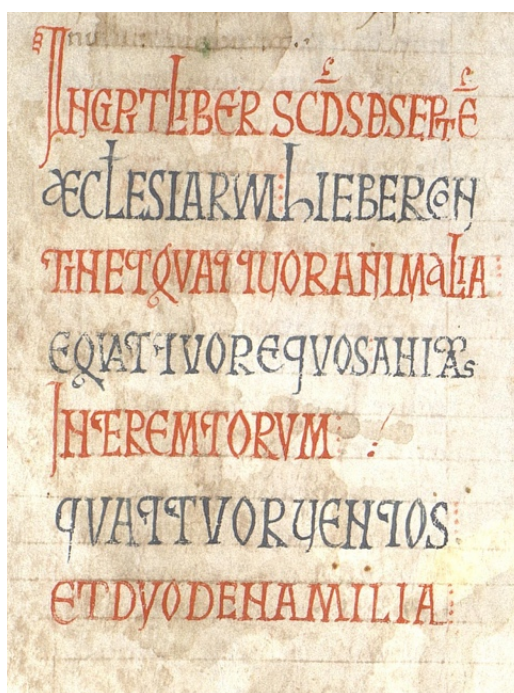 INCIPIT LIBER SCDS DE SEPTE
AECLESIARUM hIEBER CON
TINET QUATTUOR ANIMALIA
EQUATTUOR EQUOS ANIMAS
INTEREMTORUM
QUATTUOR VENTOS
ET DUODENA MILIA